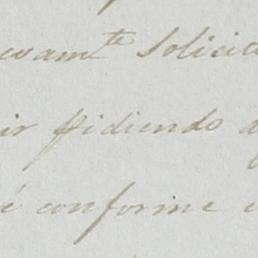 evam.te Solicit
ir pidiendo a
é conforme